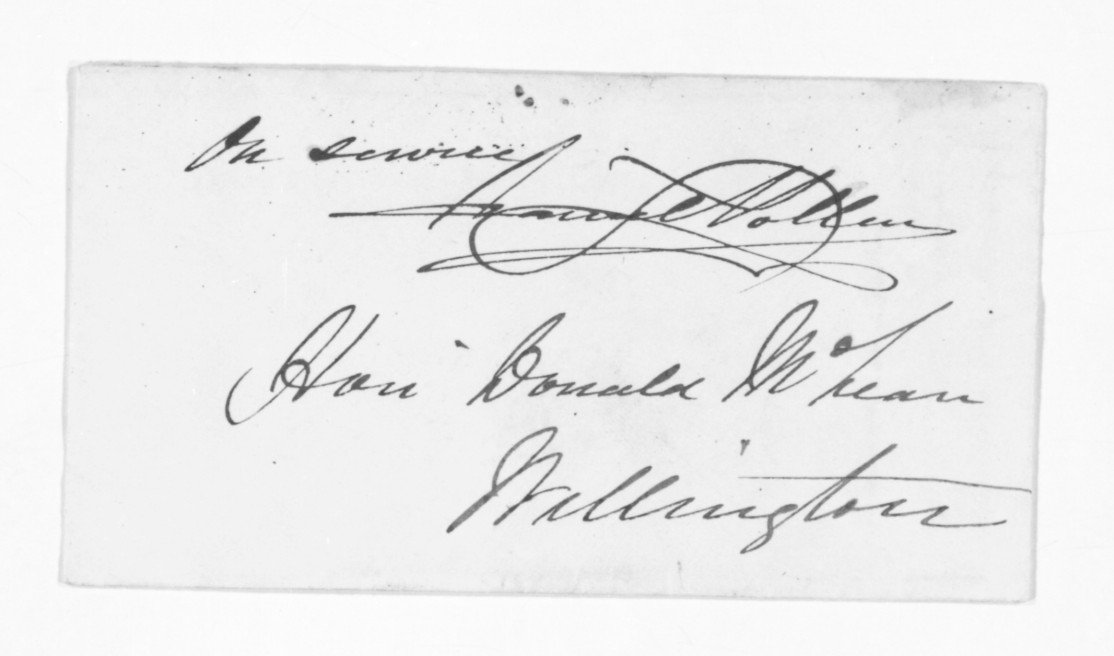 On service
Daniel Pollen
Hon Donald McLean
Wellington